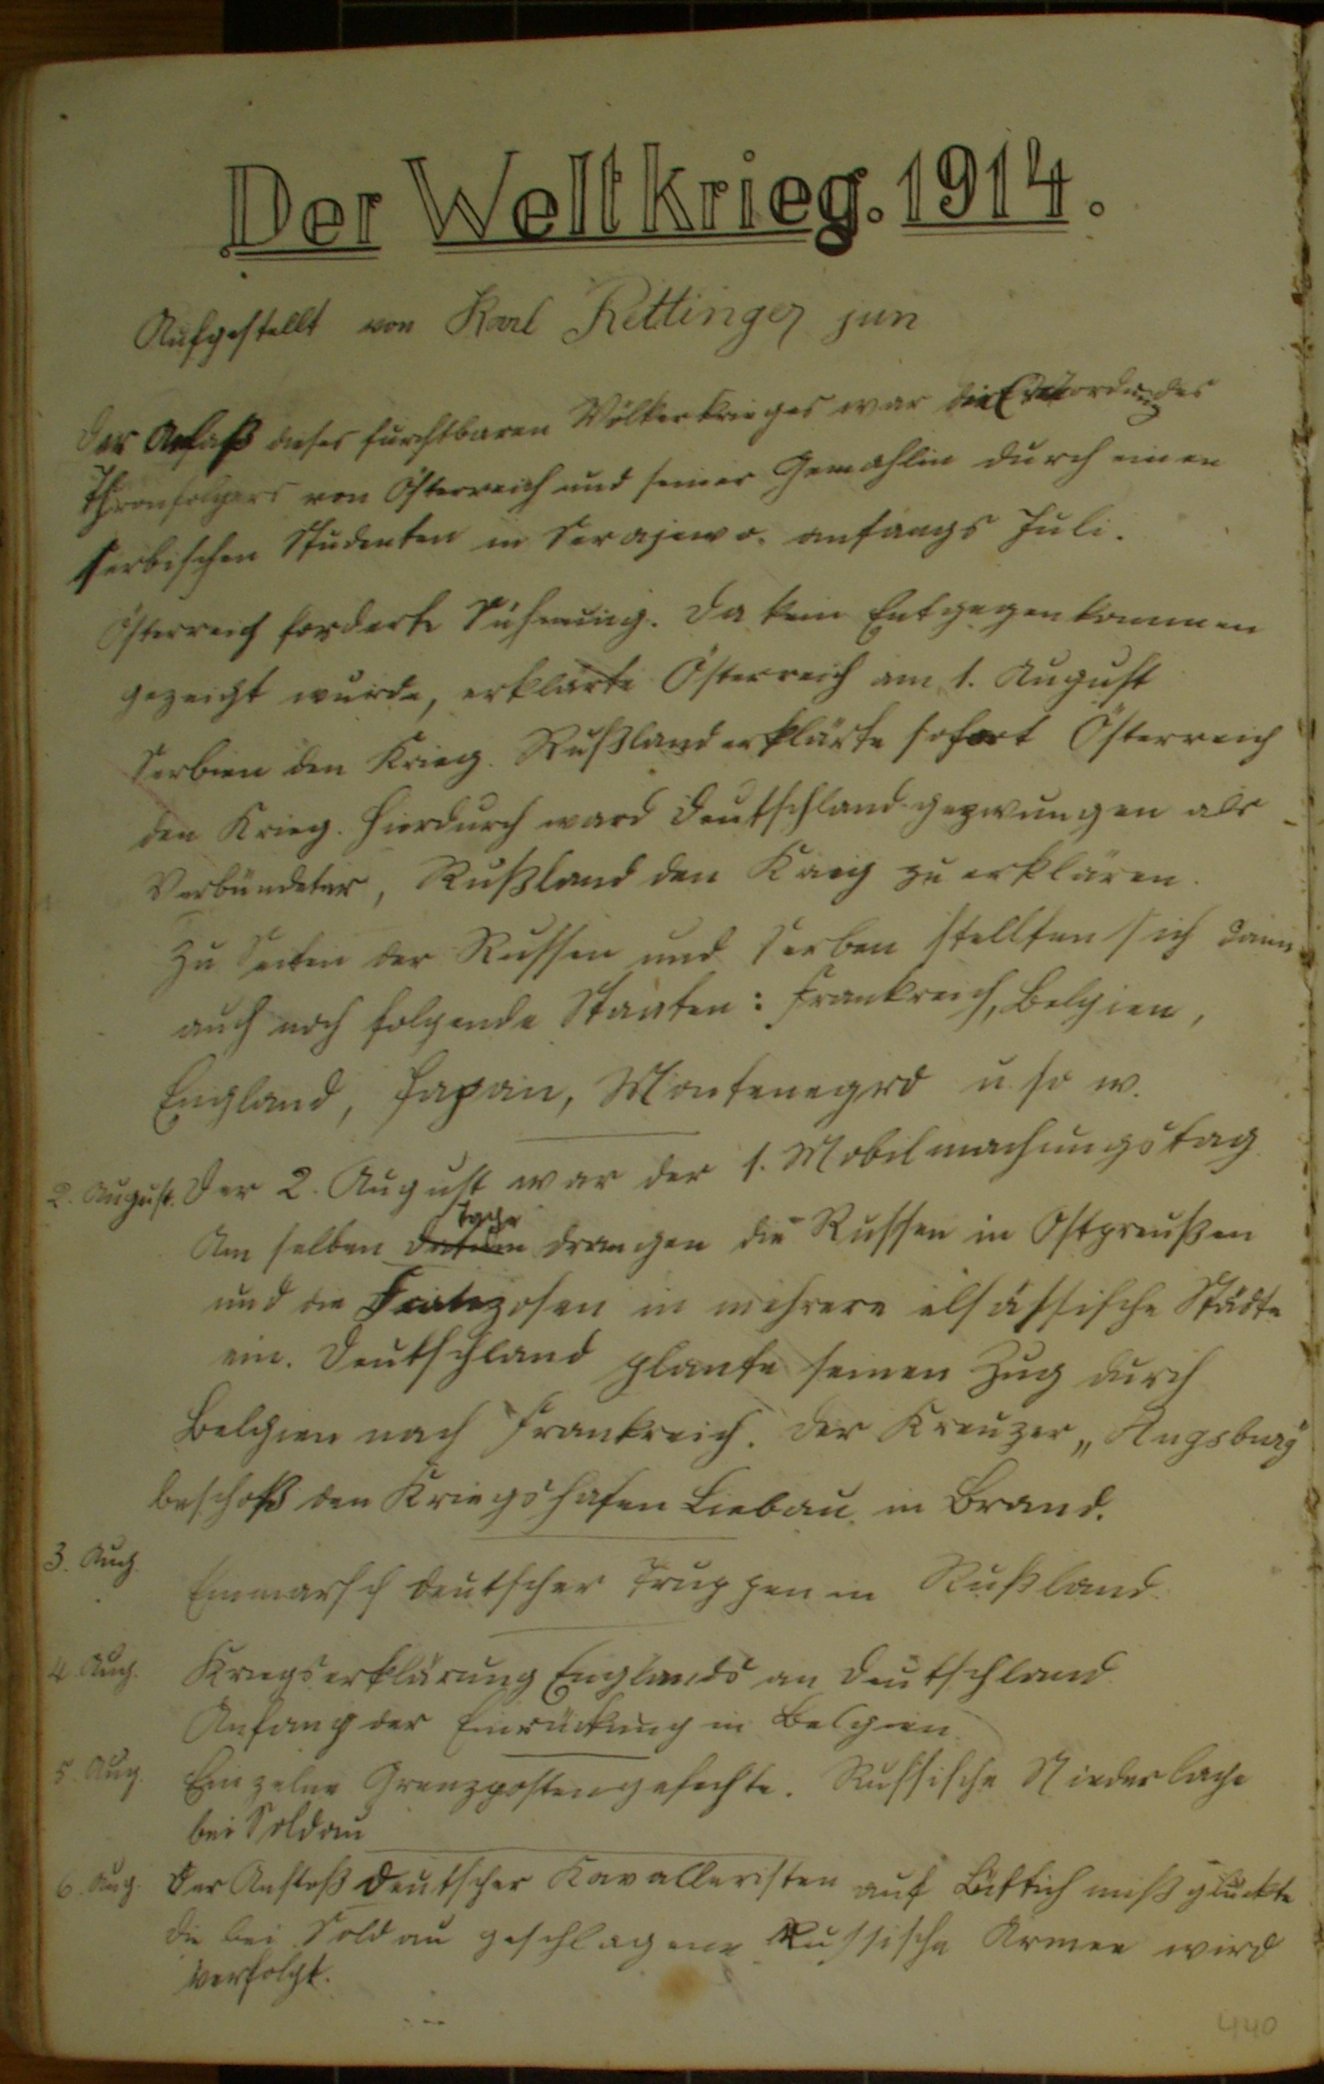 Der Weltkrieg. 1914.
Aufgestellt von Karl Rettinger jun
Der Anlaß dieses furchtbaren Völkerkrieges war die Ermordung des
Thronfolgers von Österreich und seiner Gemahlin durch einen
serbischen Studenten in Serajewo. anfangs Juli.
Österreich forderte Sühnung. Da kein Entgegenkommen
gezeigt wurde, erklärte Österreich am 1. August
Serbien den Krieg. Rußland erklärte sofort Österreich
den Krieg. Hierdurch ward Deutschland gezwungen als
Verbündeter, Rußland den Krieg zu erklären.
Zu Seiten der Russen und Serben stellten sich dann
auch noch folgende Staaten: Frankreich, Belgien,
England, Japan, Montenegro u. so w.
2. August. Der 2. August war der 1. Mobilmachungstag
Tage
Am selben Datum drangen die Russen in Ostpreußen
und die Franzosen in mehrere elsässische Städte
ein. Deutschland plante seinen Zug durch
Belgien nach Frankreich. Der Kreuzer „Augsburg"
beschoß den Kriegshafen Liebau in Brand.
3. Aug.
Einmarsch deutscher Truppen in Rußland.
4. Aug. Kriegserklärung Englands an Deutschland
Anfang der Einrückung in Belgien
5. Aug. Einzelne Grenzpostengefechte. Russische Niederlage
bei Soldau
6. Aug. Der Anstoß deutscher Kavalleristen auf Lüttich mißglückte
die bei Soldau geschlagene Russische Armee wird
verfolgt.
440